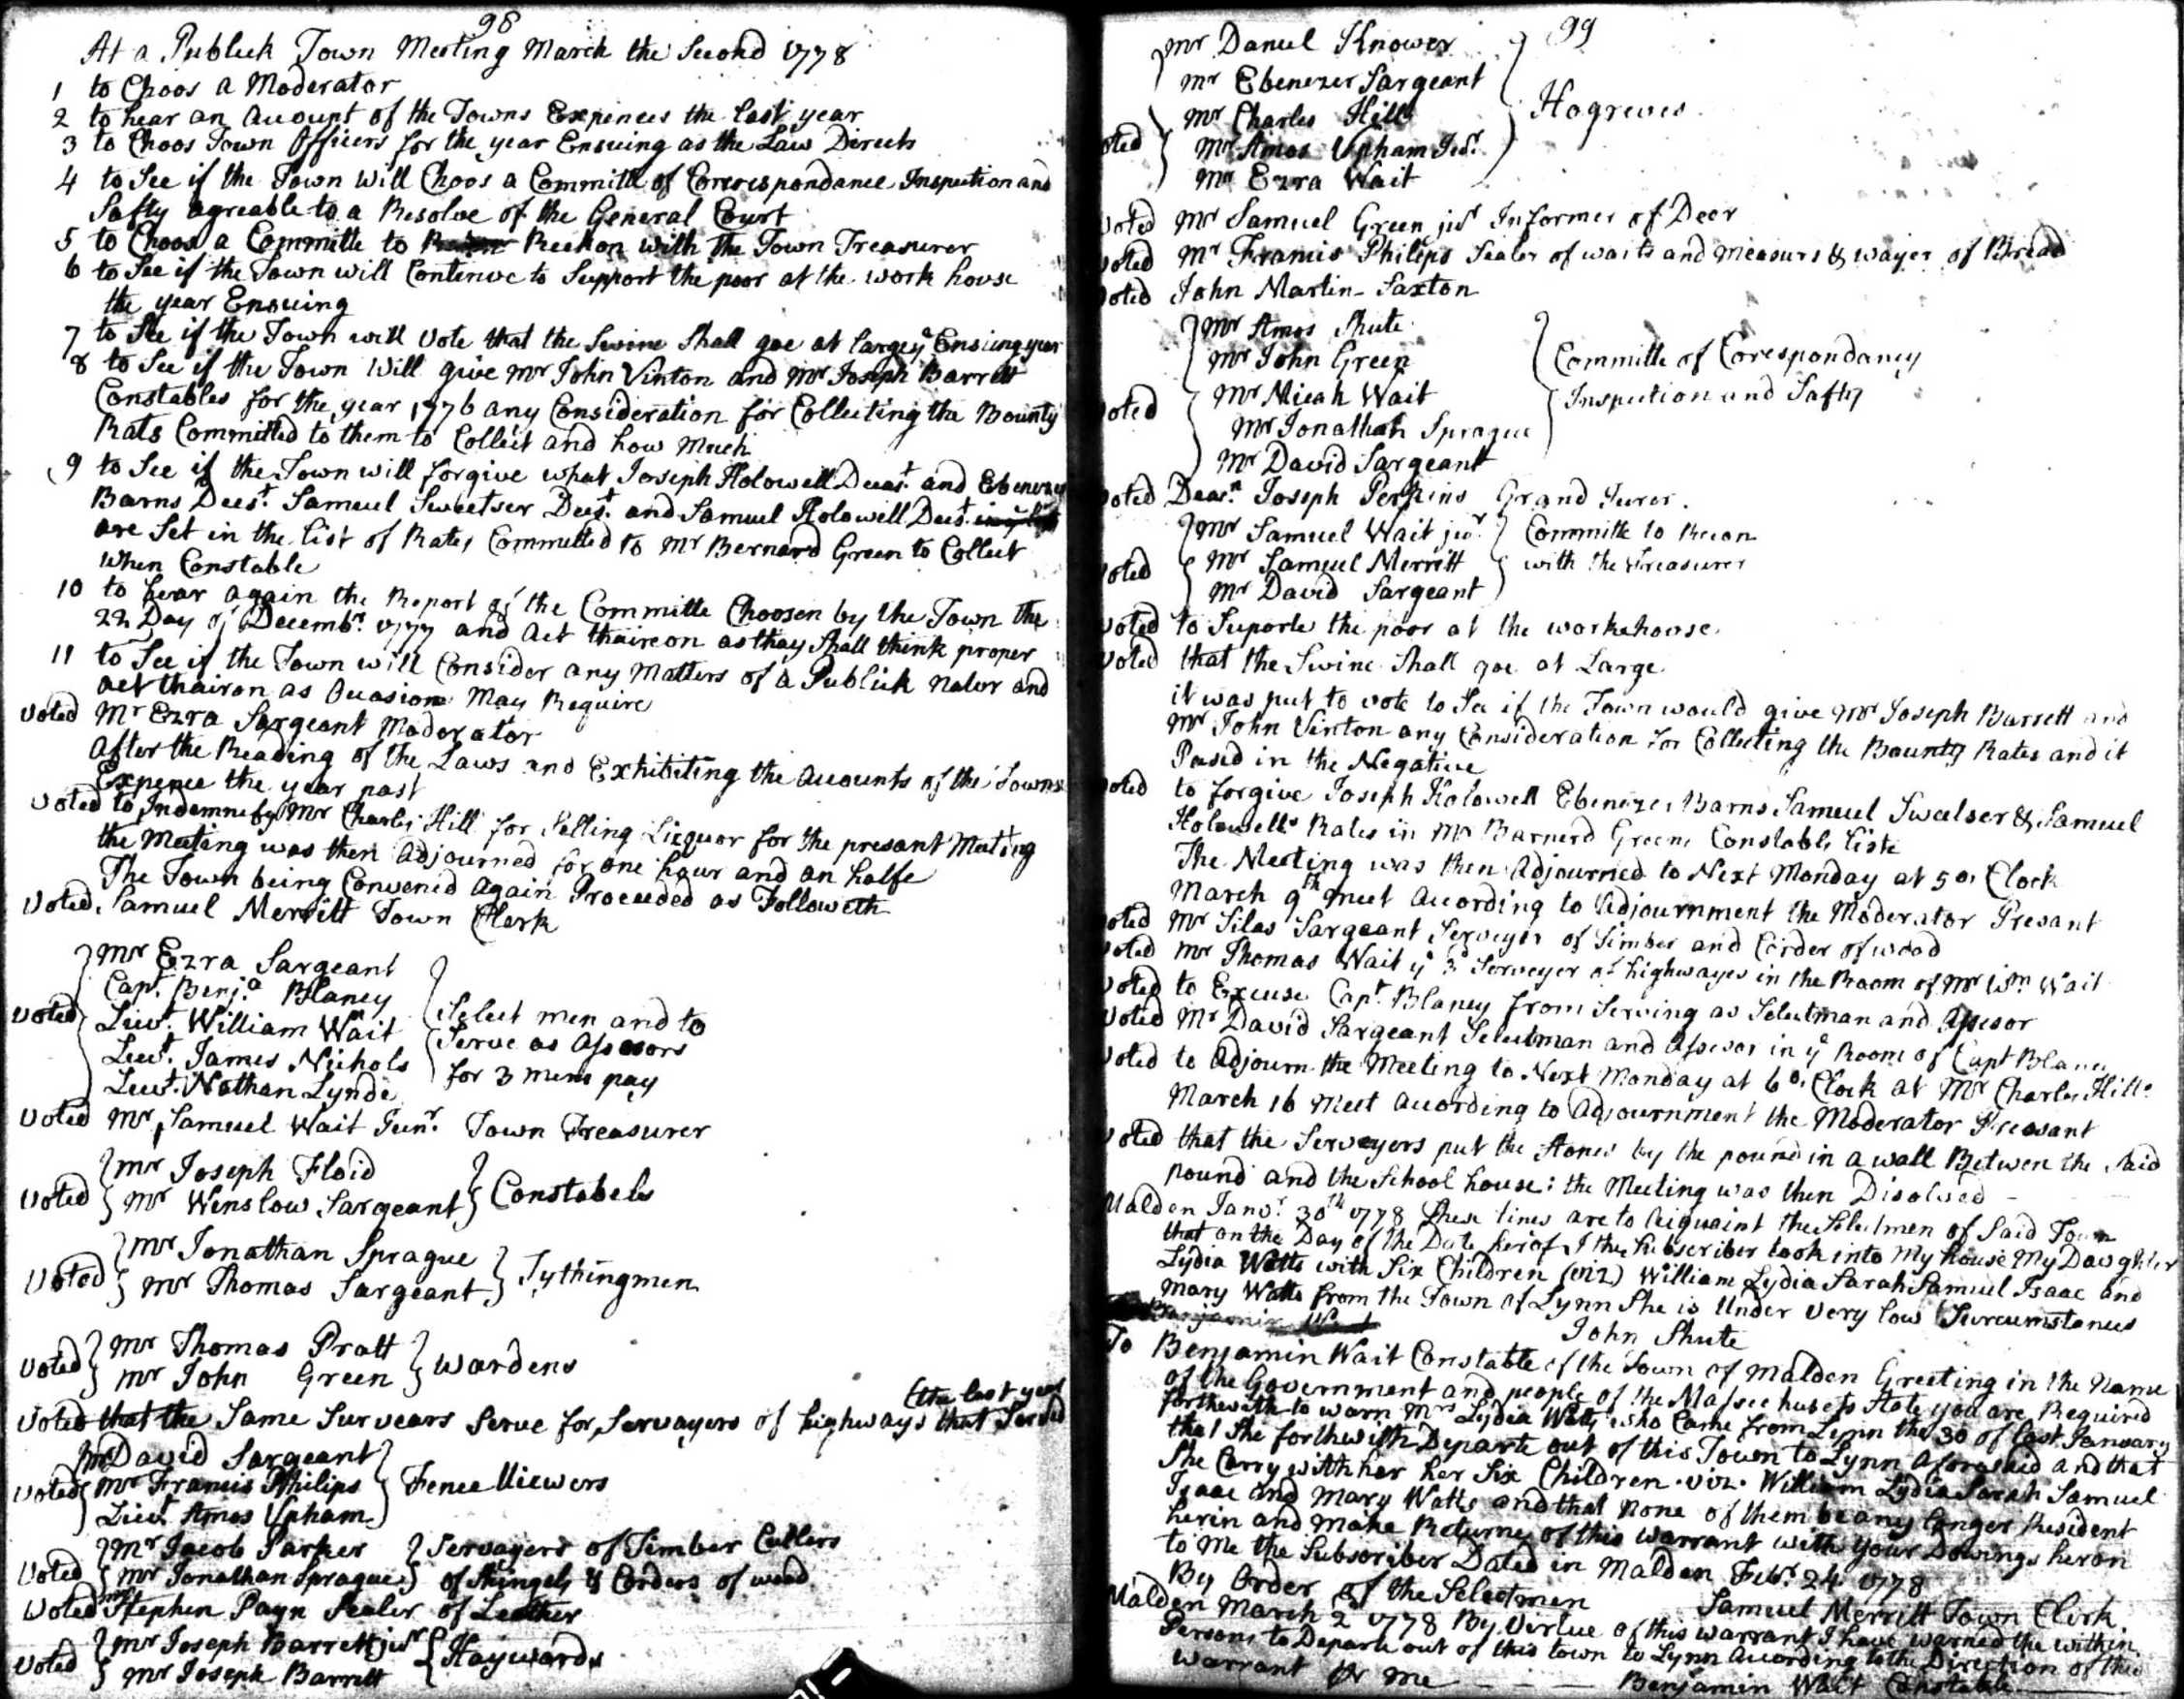 98
At a Publick Town Meeting March the Second 1778
1 to Choos a Moderator
2 to hear an Account of the Towns Expences the last year
3 to Choos Town Officers for the year Ensuing as the Law Directs
4 to See if the Town will Choos a Committe of Correspondance Inspection and
Safty agreable to a Resolve of the General Court
5 to Choos a Committe to Reckon with the Town Treasurer
6 to See if the Town will Contenue to Support the poor at the work house
the year Ensuing
7 to See if the Town will vote that the Swine Shall goe at large ye Ensuing year
8 to See if the Town Will give Mr John Vinton and Mr Joseph Barrett
Constables for the year 1776 any Consideration for Collecting the Bounty
Rats Committed to them to Collect and how Much
9 to See if the Town will forgive what Joseph Holowell Deast and Ebenezer
Barns Deest Samuel Sweetser Deest and Samuel Holowell Deest
are Set in the list of Rates Committed to Mr Bernard Green to Collect
when Constable
10 to hear again the Report of the Committe Choosen by the Town the
22 Day of Decembr 1777 and Act thaireon as thay Shall think proper
11 to See if the Town will Consider any Matters of a Publick Natur and
act thairon as Occasion May Require
Voted Mr Ezra Sargeant Moderator
After the Reading of the Laws and Exhibiting the Accounts of the Towns
Expence the year past
Voted to Indemnefy Mr Charls Hill for Selling Licquor for the presant Meeting
the Meeting was then Adjourned for one hour and an halfe
The Town being Convened Again Proceeded as Followeth
Voted Samuel Merritt Town Clerk
Mr Ezra Sargeant
Capt Benja Blaney
Voted Lieut. William Wait Select men and to
Lieut. James Nichols Serve as Assesors
Lieut. Nathan Lynde for 3 mens pay
Voted Mr Samuel Wait Junr Town Treasurer
Mr Joseph Floid
Voted Mr Winslow Sargeant Constabels
Mr Jonathan Sprague
Voted Mr Thomas Sargeant Tythingmen
Mr Thomas Pratt
Voted Mr John Green Wardens
(the last year
Voted that the Same Survears Serve for Servayers of highways that Served
Mr David Sargeant
Voted Mr Francis Philips Fence Viewers
Lieut Amos Upham
Mr Jacob Parker Servayers of Timber Cullers
Voted Mr Jonathan Sprague of Shingels & Corders of wood
Voted Mr Stephen Payn Sealer of Leather
Mr Joseph Barrett junr
Voted Mr Joseph Barrett Haywards
99
Mr Daniel Knower
Mr Ebenezer Sargeant
Mr Charles Hill Hogreves
Voted Mr Amos Upham Junr
Mr Ezra Wait
Voted Mr Samuel Green junr Informer of Deer
Voted Mr Francis Philips Sealer of waits and Measurs & wayer of Bread
Voted John Martin Saxton
Mr Amos Shute
Mr John Green Committe of Corespondancy
Voted Mr Micah Wait Inspection and Safty
Mr Jonathan Sprague
Mr David Sargeant
Voted Deacn Joseph Perkins Grand Jurer
Mr Samuel Wait junr Committe to Recon
Voted Mr Samuel Merritt with the Treasurer
Mr David Sargeant
Voted to Suporte the poor at the workehouse
Voted that the Swine Shall goe at Large
it was put to vote to See if the Town would give Mr Joseph Barrett and
Mr John Vinton any Consideration for Collecting the Bounty Rates and it
Pased in the Negative
Voted to forgive Joseph Holowell Ebenezer Barns Samuel Sweetser & Samuel
Holowells Rates in Mr Barnerd Greens Constable liste
The Meeting was then Adjourned to Next Monday at 5 o, Clock
March 9th meet According to Adjournment the Moderator Presant
Voted Mr Silas Sargeant Serveyer of Timber and Corder of wood
Voted Mr Thomas Wait ye 3d Serveyer of highwayes in the Room of Mr Wm Wait
Voted to Excuse Capt Blaney from Serving as Selectman and Assesor
Voted Mr David Sargeant Selectman and Assesor in ye Roome of Capt Blaney
Voted to Adjourn the Meeting to Next Monday at 6 o, Clock at Mr Charles Hills
March 16 Meet According to Adjournment the Moderator Presant
Voted that the Serveyers put the Stones by the pound in a wall Betwen the Said
pound and the School house: the Meeting was then Disolved
Malden Janr 30th 1778 These lines are to Acquaint the Selectmen of Said Town
that on the Day of the Date herof I the Subscriber took into My house My Daughter
Lydia Watts with Six Children (viz) William Lydia Sarah Samuel Isaac and
Mary Watts from the Town of Lynn She is Under Very low Surcumstances
John Shute
To Benjamin Wait Constable of the Town of Malden Greeting in the Name
of the Government and people of the Massechusets State you are Required
forthwith to warn Mrs Lydia Watts who Came from Lynn the 30 of Last January
that She forthwith Departe out of this Town to Lynn Aforesaid and that
She Carry with her her Six Children viz. William Lydia Sarah Samuel
Isaac and Mary Watts and that None of them be any longer Resident
herin and Make Returne of this Warrant with your Doings heron
to Me the Subscriber Dated in Malden Febr 24 1778
By Order of the Selectmen Samuel Merritt Town Clerk
Malden March 2 1778 By Virtue of this Warrant I have warned the within
Persons to Departe out of this town to Lynn According to the Direction of this
Warrant Pr me Benjamin Wait Constable